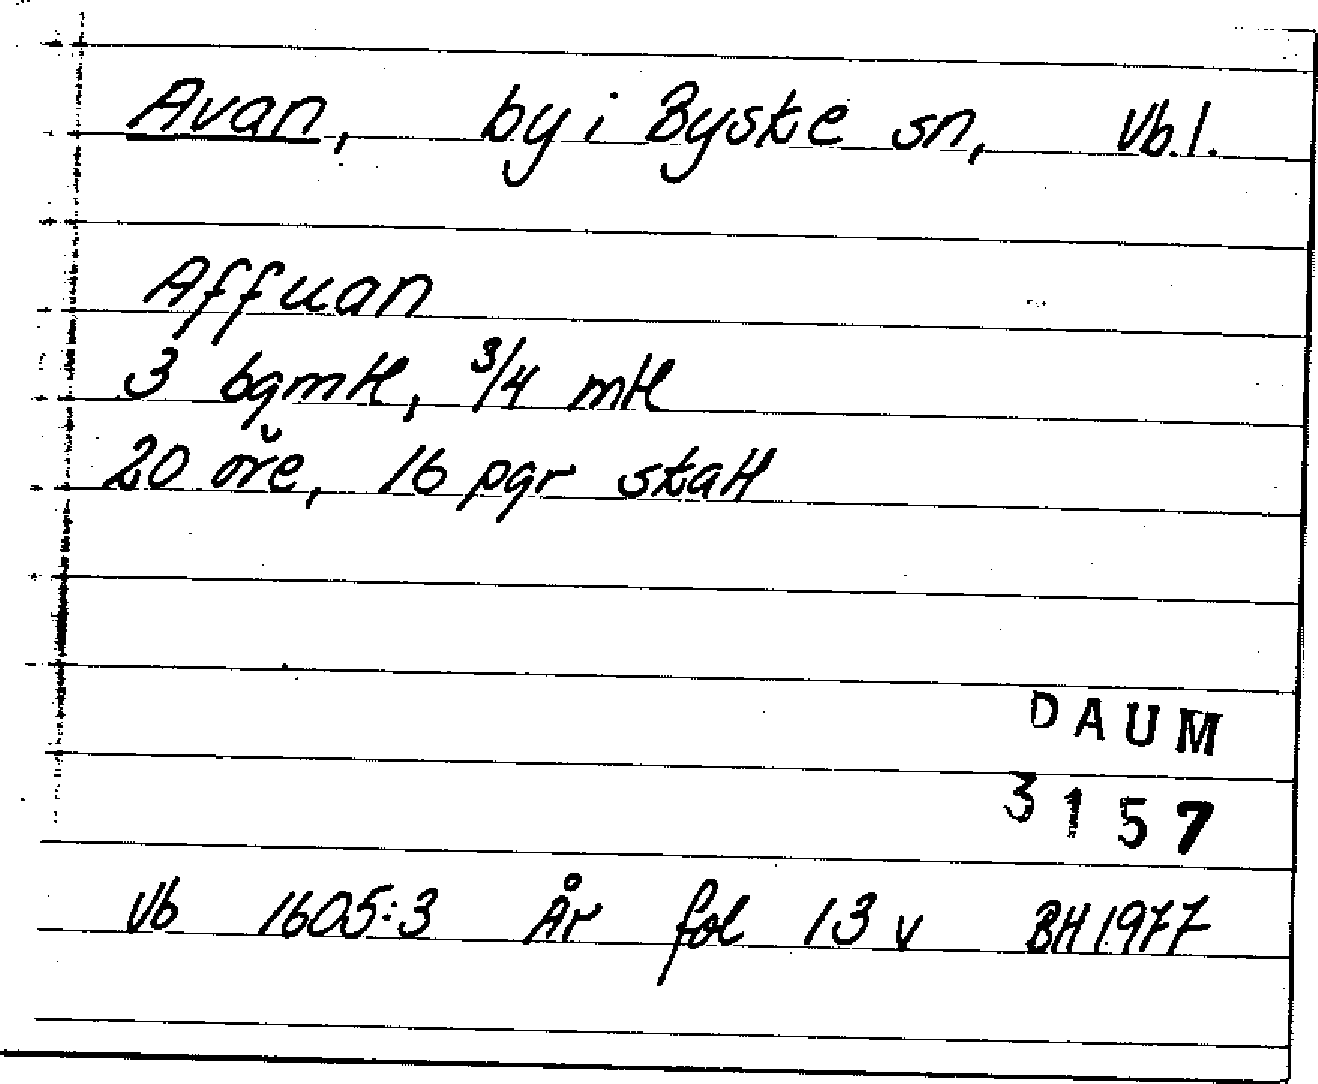 Avan, by i Byske sn, Vb. l.
Affuan
3 bgmtl, 3/4 mtl
20 öre, 16 pgr skatt
DAUM
3157
Vb 1605:3 År fol 13 v BH 1977